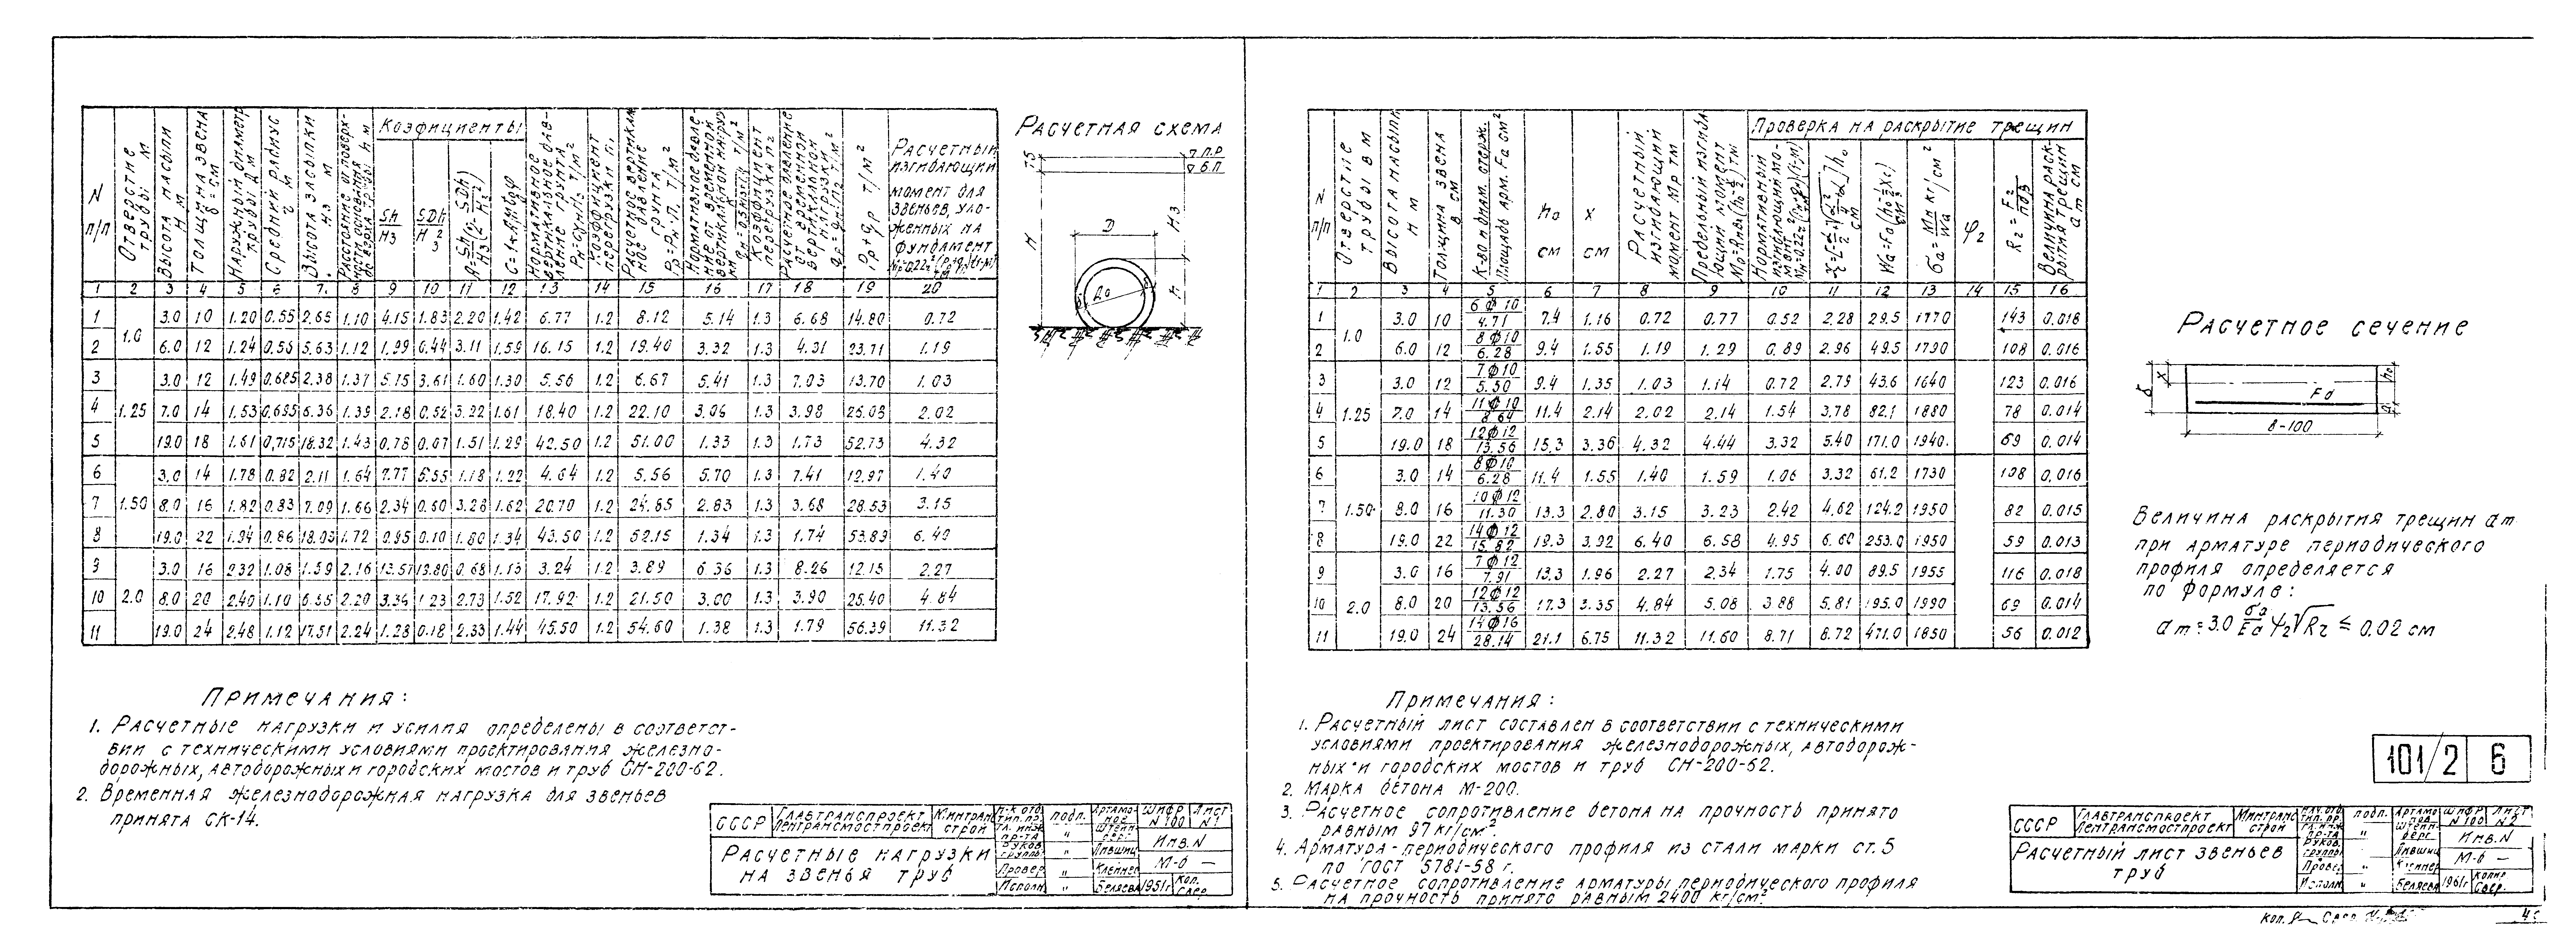 Коэфициенты
N п/п | Отверстие трубы м | Высота насыпи H м | Толщина звена δ см | Наружный диаметр трубы D м | Средний радиус r м | Высота засыпки Hз м | Расстояние от поверхности основания до верха трубы h м | Sh/Hз | SDh/H²з | A=Sh/Hз(2-SDh/H²з) | C=1+Aμnφ | Нормативное вертикальное давление грунта Pн=Cγн Hз т/м² | Коэффициент перегрузки п₁ | Расчетное вертикальное давление грунта Pр=Pн·п₁ т/м² | Нормативное давление от временной вертикальной нагрузки т/м² | Коэффициент перегрузки п₂ | Расчетное давление от временной вертикальной нагрузки qр=qн·п₂ т/м² | Pр+qр т/м² | Расчетный изгибающий момент для звеньев, уложенных на фундамент
1 2 3 4 5 6 7 8 9 10 11 12 13 14 15 16 17 18 19 20
1 1.0 3.0 10 1.20 0.55 2.65 1.10 4.15 1.83 2.20 1.42 6.77 1.2 8.12 5.14 1.3 6.68 14.80 0.72
2 6.0 12 1.24 0.56 5.63 1.12 1.99 0.44 3.11 1.59 16.15 1.2 19.40 3.32 1.3 4.31 23.71 1.19
3 3.0 12 1.49 0.685 2.38 1.37 5.15 3.61 1.60 1.30 5.56 1.2 6.67 5.41 1.3 7.03 13.70 1.03
4 1.25 7.0 14 1.53 0.695 6.36 1.39 2.18 0.52 3.22 1.61 18.40 1.2 22.10 3.06 1.3 3.98 26.08 2.02
5 19.0 18 1.61 0,715 18.32 1.43 0.78 0.07 1.51 1.29 42.50 1.2 51.00 1.33 1.3 1.73 52.73 4.32
6 3.0 14 1.78 0.82 2.11 1.64 7.77 6.55 1.18 1.22 4.64 1.2 5.56 5.70 1.3 7.41 12.97 1.40
7 1.50 8.0 16 1.82 0.83 7.09 1.66 2.34 0.60 3.28 1.62 20.70 1.2 24.85 2.83 1.3 3.68 28.53 3.15
8 19.0 22 1.94 0.86 18.03 1.72 0.95 0.10 1.80 1.34 43.50 1.2 52.15 1.34 1.3 1.74 53.89 6.40
9 3.0 16 2.32 1.08 1.59 2.16 13.57 19.80 0.68 1.13 3.24 1.2 3.89 6.36 1.3 8.26 12.15 2.27
10 2.0 8.0 20 2.40 1.10 6.55 2.20 3.36 1.23 2.73 1.52 17.92 1.2 21.50 3.00 1.3 3.90 25.40 4.84
11 19.0 24 2.48 1.12 17.51 2.24 1.28 0.18 2.33 1.44 45.50 1.2 54.60 1.38 1.3 1.79 56.39 11.32
Расчетная схема
П.Р
Б.П
H
Hз
D
h
Примечания:
1. Расчетные нагрузки и усилия определены в соответст-
вии с техническими условиями проектирования железно-
дорожных, автодорожных и городских мостов и труб СН-200-62.
2. Временная железнодорожная нагрузка для звеньев
принята СК-14.
СССР
Главтранспроект
Лентрансмостпроект
Минтранс
строй
подп.
Шифр N 100
Лист N 1
Инв. N
М-б —
Расчетные нагрузки
на звенья труб
Провер
Исполн
Лившиц
Клейнер
Беляева
1961г
Коп.
Свер.
Проверка на раскрытие трещин
N п/п | Отверстие трубы в м | Высота насыпи H м | Толщина звена в см | К-во и диам. стерж. Площадь арм. Fа см² | h₀ см | x см | Расчетный изгибающий момент Mр тм | Предельный изгибающий момент тм | Нормативный изгибающий момент | см | Wа=Fа(h₀-⅓xс) см³ | σа=Mн/Wа кг/см² | ψ₂ | Rг | Величина раскрытия трещин aт см
1 2 3 4 5 6 7 8 9 10 11 12 13 14 15 16
1 1.0 3.0 10 6⌀10/4.71 7.4 1.16 0.72 0.77 0.52 2.28 29.5 1770 143 0.018
2 6.0 12 8⌀10/6.28 9.4 1.55 1.19 1.29 0.89 2.96 49.5 1790 108 0.016
3 3.0 12 7⌀10/5.50 9.4 1.35 1.03 1.14 0.72 2.79 43.6 1640 123 0.016
4 1.25 7.0 14 11⌀10/8.64 11.4 2.14 2.02 2.14 1.54 3.78 82.1 1880 78 0.014
5 19.0 18 12⌀12/13.56 15.3 3.36 4.32 4.44 3.32 5.40 171.0 1940. 69 0.014
6 3.0 14 8⌀10/6.28 11.4 1.55 1.40 1.59 1.06 3.32 61.2 1730 108 0.016
7 1.50 8.0 16 10⌀12/11.30 13.3 2.80 3.15 3.23 2.42 4.62 124.2 1950 82 0.015
8 19.0 22 14⌀12/15.82 19.3 3.92 6.40 6.58 4.95 6.60 253.0 1950 59 0.013
9 3.0 16 7⌀12/7.91 13.3 1.96 2.27 2.34 1.75 4.00 89.5 1955 116 0.018
10 2.0 8.0 20 12⌀12/13.56 17.3 3.35 4.84 5.08 3.88 5.81 195.0 1990 69 0.014
11 19.0 24 14⌀16/28.14 21.1 6.75 11.32 11.60 8.71 8.72 471.0 1850 56 0.012
Расчетное сечение
δ
x
h₀
Fа
в-100
Величина раскрытия трещин aт
при арматуре периодического
профиля определяется
по формуле:
aт=3.0 σа/Eа ψ₂√Rг ≤ 0.02 см
Примечания:
1. Расчетный лист составлен в соответствии с техническими
условиями проектирования железнодорожных, автодорож-
ных и городских мостов и труб СН-200-62.
2. Марка бетона М-200.
3. Расчетное сопротивление бетона на прочность принято
равным 97 кг/см².
4. Арматура-периодического профиля из стали марки ст.5
по ГОСТ 5781-58 г.
5. Расчетное сопротивление арматуры периодического профиля
на прочность принято равным 2400 кг/см².
101/2 6
СССР
Главтранспроект
Лентрансмостпроект
Минтранс
строй
подп.
Шифр N 100
Лист N 2
Инв. N
М-б —
Расчетный лист звеньев
труб
Провер
Исполн
Лившиц
Клейнер
Беляева
1961г
Копир
Свер.
Коп.